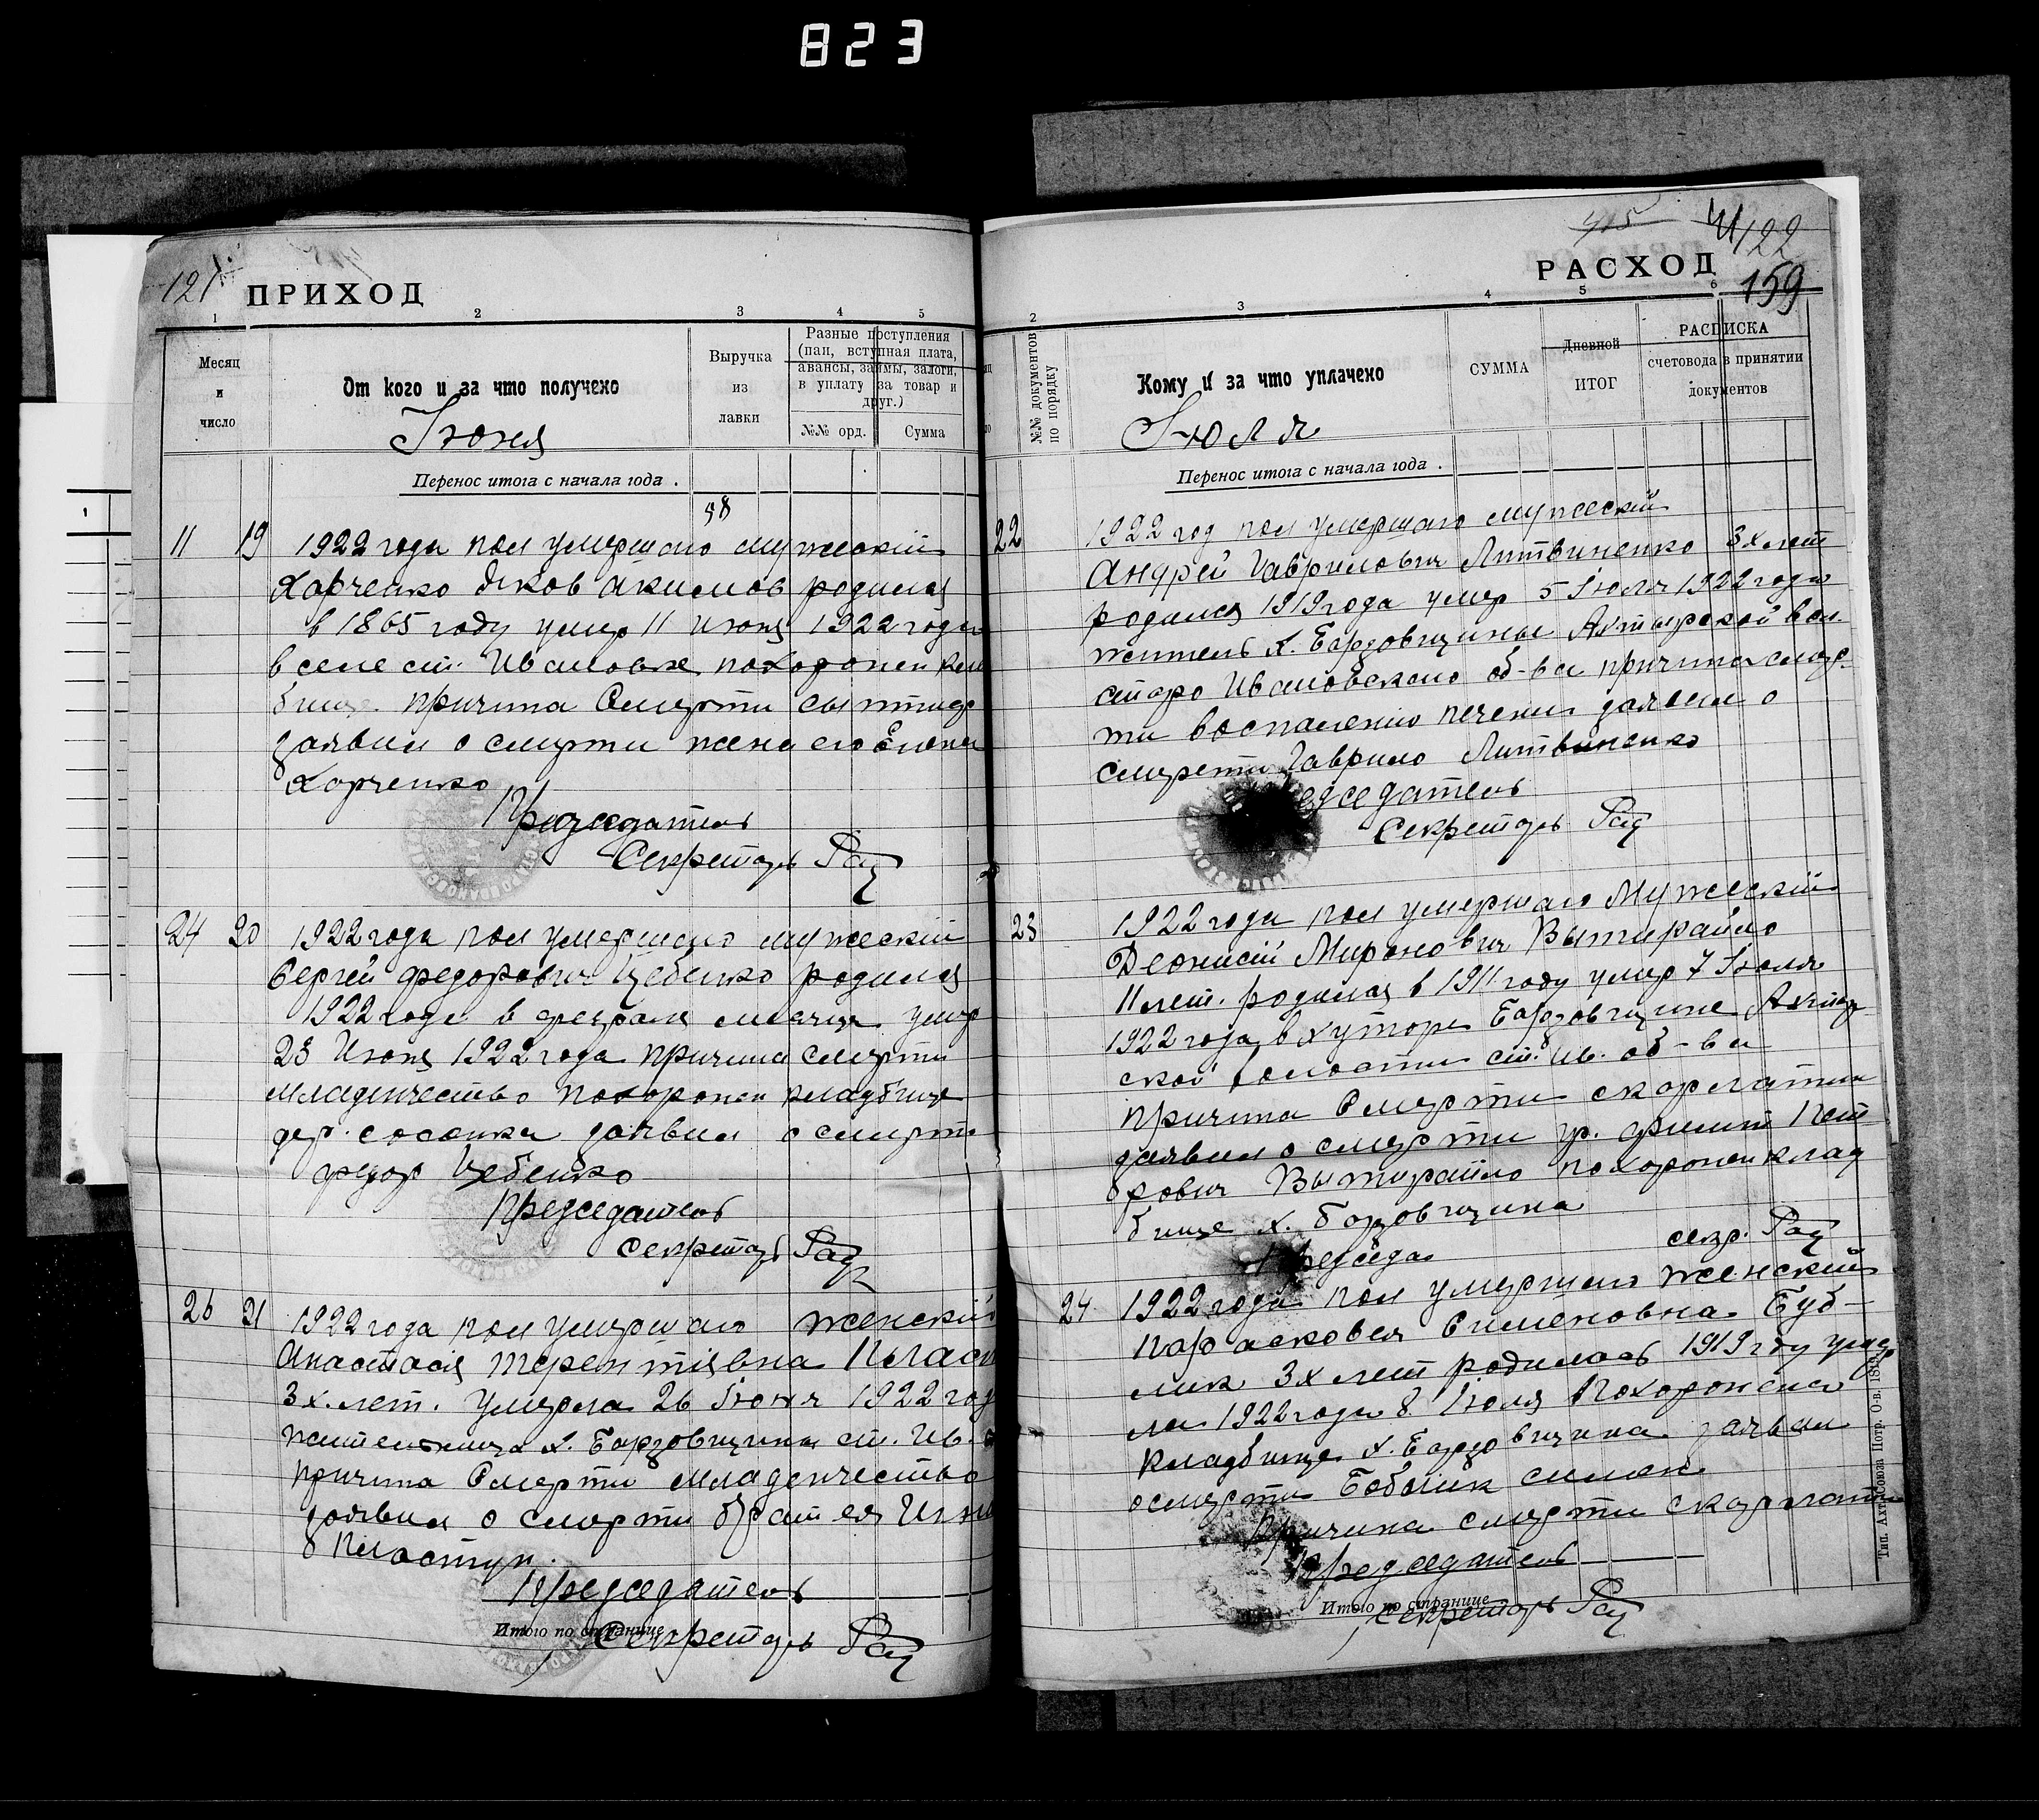 823
121
ПРИХОД
1 2 3 4 5
Месяц и число
От кого и за что получено
Выручка из лавки
Разные поступления (паи, вступная плата, авансы, займы, залоги, в уплату за товар и друг.)
№№ орд. Сумма
Июня
Перенос итога с начала года .
58
11 19 1922 года пол умершаго мужеский
Харченко Яков Акимов родился
в 1865 году умер 11 июня 1922 года
в селе ст. Ивановке похоронен кла
бище причина Смерти сыптиф
заявил о смерти жена его
Харченко
Председатель
Секретарь
24 20 1922 года пол умершаго мужеский
Сергей Федорович Цебенко родился
1922 года в феврале месяце умер
23 Июня 1922 года причина смерти
младенчество похоронен кладбище
дер. сосонка заявил о смерти
федор Цебенко
Председатель
Секретарь
26 21 1922 года пол умершаго женский
Анастасія Терентіявна Пласт
3х. лет. умерла 26 Июня 1922 год
жительница х. Барзовщина ст. Ив.
причина Смерти младенчество
заявил о смерти брат ея
Пластун.
Председатель
Итого по странице
Секретарь
415 122
159
РАСХОД
2 3 4 5 6
№№ документов по порядку
Кому и за что уплачено
СУММА
Дневной ИТОГ
РАСПИСКА счетовода в принятии документов
Июля
Перенос итога с начала года .
22 1922 год пол умершаго мужеский
Андрей Гаврилович Литвиненко 3х лет
родился 1919 года умер 5 Июля 1922 года
житель х. Барзовщины Ахтырской вол.
старо Ивановского об-ва причина смер
ти воспаление печени заявил о
смерти Гаврило Литвиненко
Председатель
Секретарь
23 1922 года пол умершаго Мужеский
Деонисій Миронович Вытирайло
11 лет. родился в 1911 году умер 7 Июля
1922 года в хуторе Барзовщине Ахтыр
ской волости ст. Ив. об-ва
причина Смерти скарлатин
заявил о смерти гр. филип Пет
рович Вытирайло похоронен клад
бище х. Барзовщина
Председа секр.
24 1922 года пол умершаго женский
Парасковея Сименовна Буб-
лик 3х лет родилась 1919 году умер
ла 1922 года 8 Июля Похоронена
кладбище х. Барзовщина заявил
о смерти Бобылик симен
Причина смерти скарлатин
Председатель
Итого по странице
Секретарь